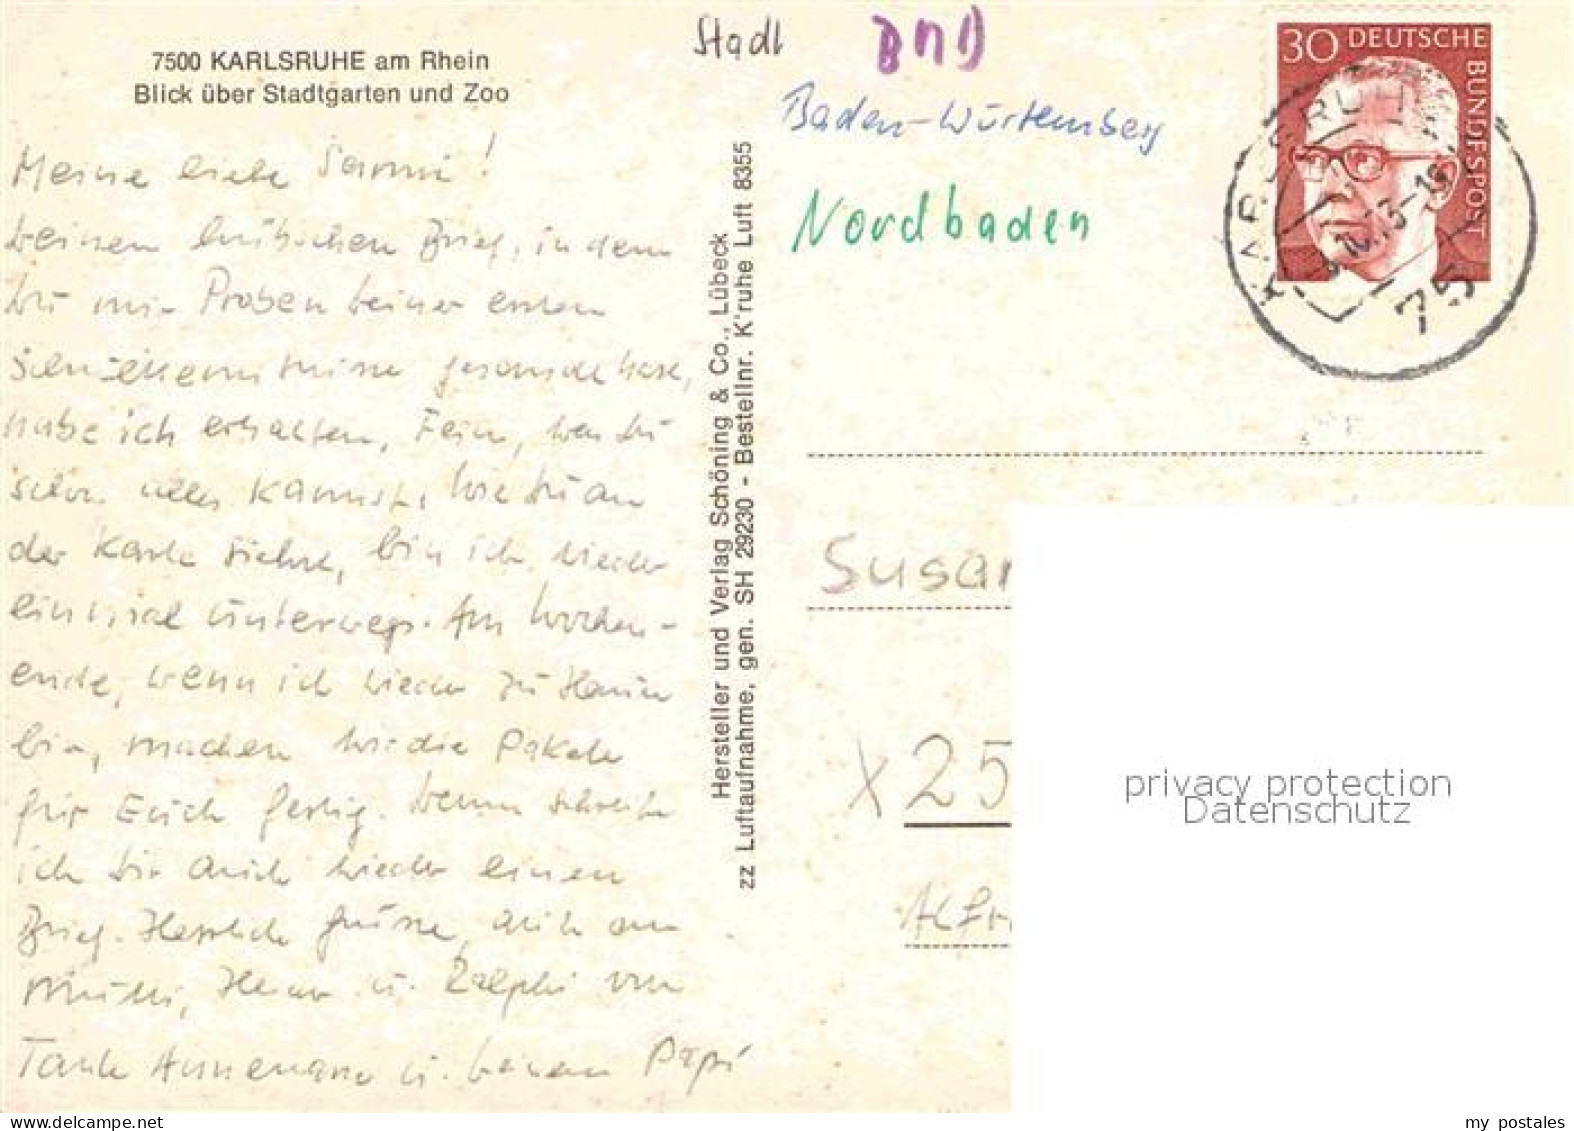 7500 KARLSRUHE am Rhein
Blick über Stadtgarten und Zoo
Meine liebe Sanni!
Deinen hübschen Brief, in dem
Du mir Proben Deiner ersten
Schreibkenntnisse gesandt hast,
habe ich erhalten. Fein, was Du
schon alles kannst. Wie Du an
der Karte siehst, bin ich wieder
einmal unterwegs. Am Wochen-
ende, wenn ich wieder zu Hause
bin, machen wir die Pakete
für Euch fertig. Dann schreibe
ich Dir auch wieder einen
Brief. Herzliche Grüsse, auch an
Mutti, u. Ralphi von
Tante Annemarie u. Deinem Papi
Hersteller und Verlag Schöning & Co., Lübeck
zz Luftaufnahme, gen. SH 29230 - Bestellnr. K'ruhe Luft 8355
Stadt
BND
Baden-Würtemberg
Nordbaden
30 DEUTSCHE BUNDESPOST
KARLSRUHE
75
Susan
x 25
Alfr
privacy protection
Datenschutz
my postales